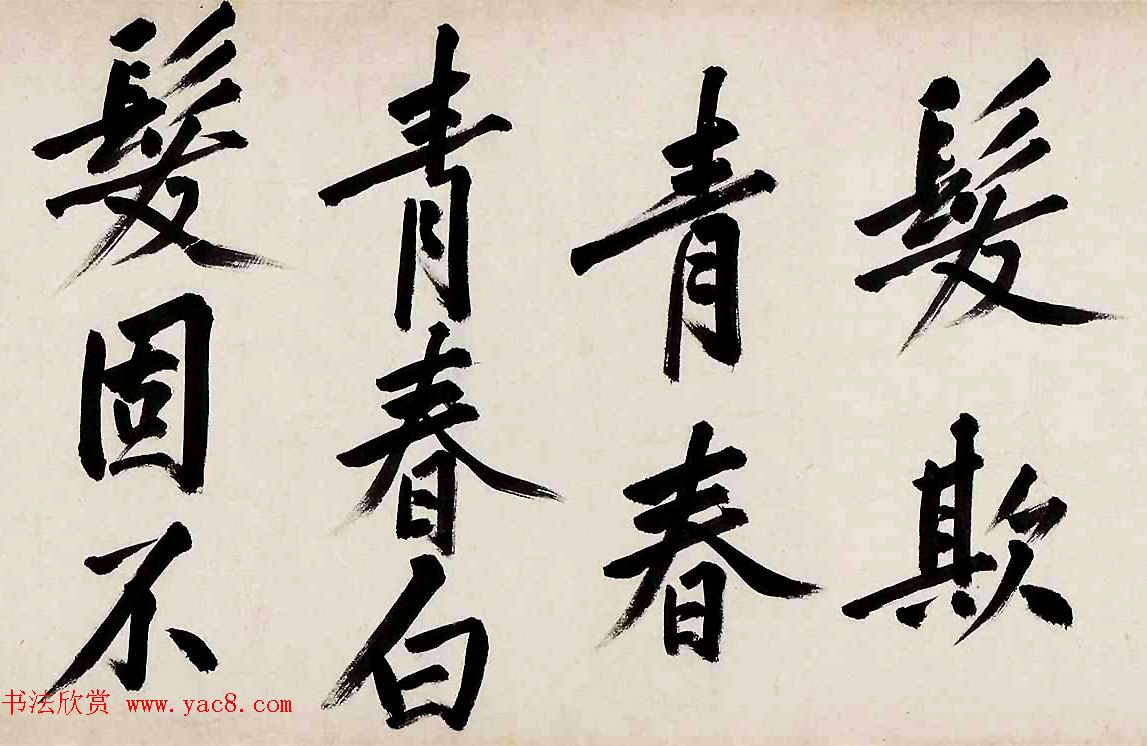 髮欺
青春
青春白
髮固不
书法欣赏 www.yac8.com